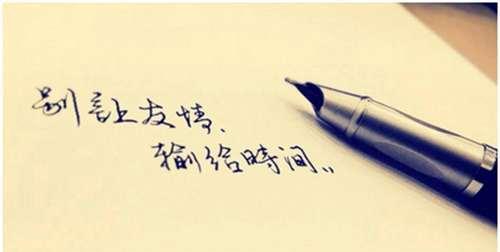 别让友情、
输给時间。